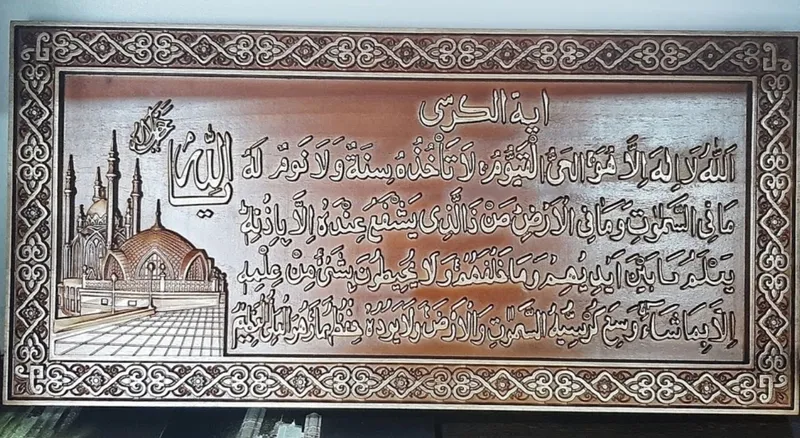 اية الكرسى
اَللّٰهُ لَا اِلٰهَ اِلَّا هُوَ اَلْحَىُّ الْقَيُّومُ لَا تَأْخُذُهُ سِنَةٌ وَلَا نَوْمٌ لَهُ
مَا فِى السَّمٰوٰتِ وَمَا فِى الْاَرْضِ مَنْ ذَا الَّذِى يَشْفَعُ عِنْدَهُ اِلَّا بِاِذْنِهِ
يَعْلَمُ مَا بَيْنَ اَيْدِيهِمْ وَمَا خَلْفَهُمْ وَلَا يُحِيطُونَ بِشَىْءٍ مِنْ عِلْمِهِ
اِلَّا بِمَا شَاءَ وَسِعَ كُرْسِيُّهُ السَّمٰوٰتِ وَالْاَرْضَ وَلَا يَؤُدُهُ حِفْظُهُمَا وَهُوَ الْعَلِىُّ الْعَظِيمُ
اللّٰه